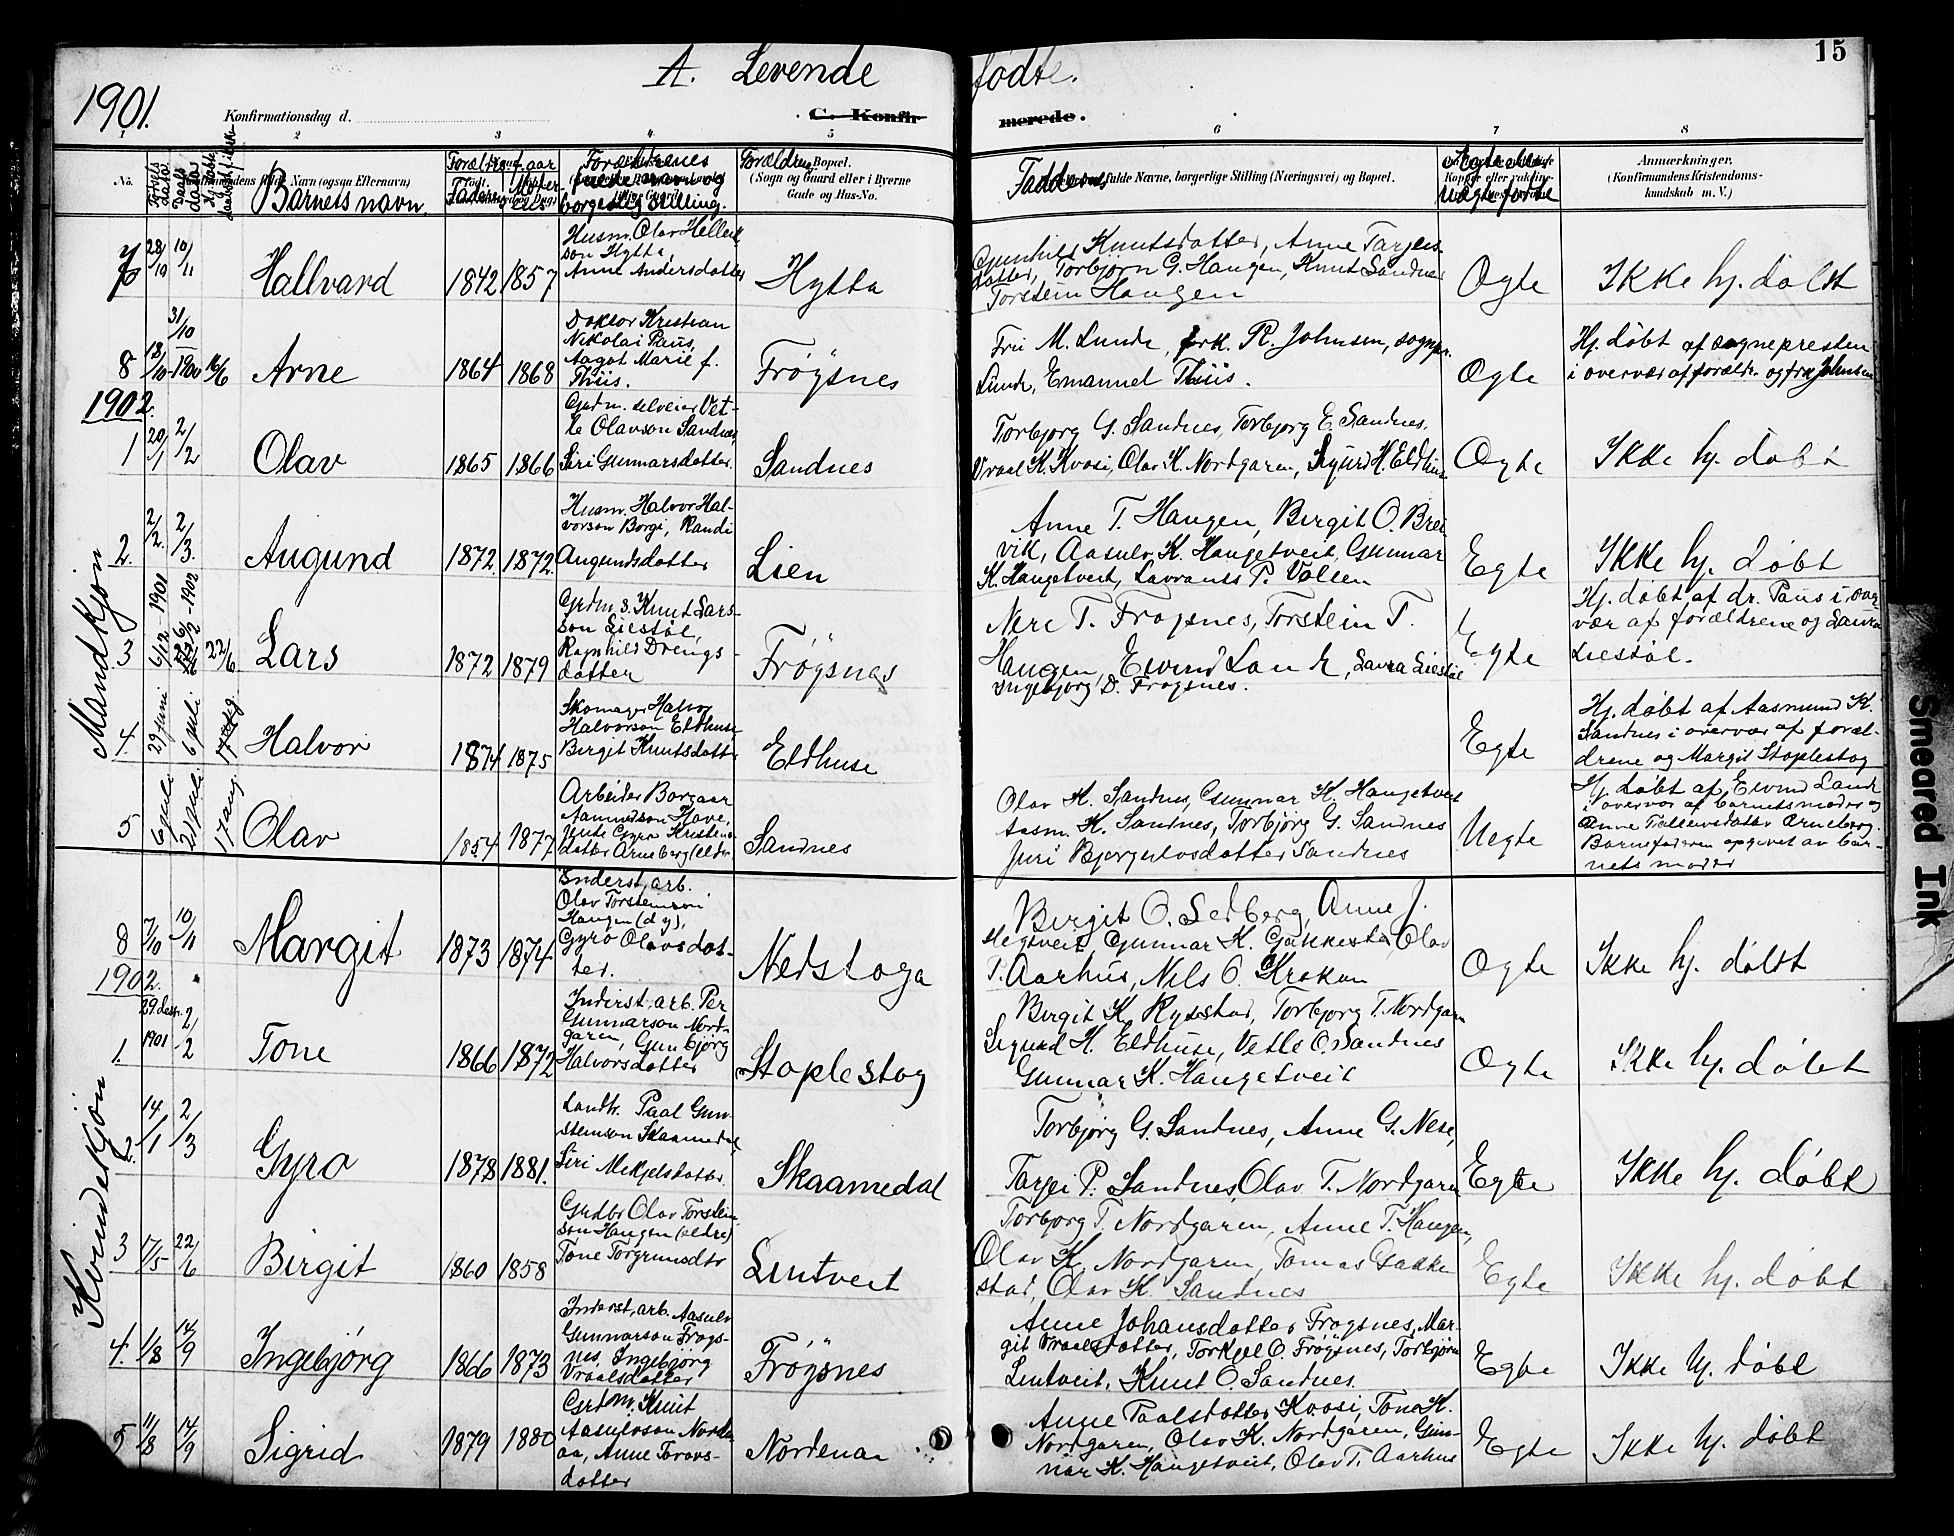 15
A. Levende fødte.
1901.
Konfirmationsdag d.
C. Konfirmerede.
1 2 3 4 5 6 7 8
No.
Barnets navn.
Forældrenes
Bopæl.
(Sogn og Gaard eller i Byerne
Gade og Hus-No.
Faddernes fulde Navne, borgerlige Stilling (Næringsvei) og Bopæl.
Anmærkninger.
(Konfirmandens Kristendoms-
kundskab m. V.)
Mandkjön
7 28/10 10/11 Hallvard 1842 1857
Husm. Olav Hellek
son Hytta,
Anne Andersdatter
Hytta
Gunhild Knutsdatter, Anne Targeis
datter, Torbjörn G. Haugen, Knut Sandnes
Torstein Haugen
Ogte
Ikke hj. døbt
8 18/10 31/10 1900 16/6 Arne 1864 1868
Doktor Kristian
Nikolai Paus,
Aagot Marie f.
Thiis.
Frøysnes
Fru M. Lunde, frk. R. Johnsen, sognpr.
Lunde, Emanuel Thiis.
Ogte
Hj. døbt af sognepresten
i overvær af foreldr. og frk Johnsen
1902.
1 20/1 2/2 Olav 1865 1866
Grdm. selveier Vet-
le Olavson Sandnes,
Siri Gunnarsdatter.
Sandnes
Torbjorg G. Sandnes, Torbjorg E. Sandnes,
Vraal K. Kvosi, Olav K. Nordgaren, Sigurd H. Eldhus
Ogte
Ikke hj. døbt
2. 2/2. 2/3. Augund 1872. 1872.
Husm. Halvor Hal-
vorson Borgi, Randi
Augundsdatter
Lien
Anne T. Haugen, Birgit O. Brei
vik, Aasulv K. Haugetveit, Gunnar
K. Haugetveit, Lavrants P. Valen
Egte
Ikke hj. døbt
3 6/12 1901 1902 22/6 Lars 1872 1879
Grdm. s. Knut Lars-
son Liestöl,
Ragnhild Drengs-
datter
Frøysnes
Nere T. Frøysnes, Torstein T.
Haugen, Eivind Lande, Lavra Liestöl
Ingebjorg D. Frøysnes.
Egte
Hj. døbt af dr. Paus i over
vær af forældrene og Laura
Liestöl.
4. 29 juni 6 juli Halvor 1874 1875
Skomager Halvor
Halvorson Eldhuse
Birgit Knutsdatter
Eldhuse
Egte
Hj. døbt af Aasmund K.
Sandnes i overvær af foræl-
drene og Margit Stoplestog
5 6 juli 21 juli 17 aug. Olav 1854 1877
Arbeider Borgaar
Aanundson Hove,
Jente Gyro Kristens-
datter Arneberg (eldre)
Sandnes
Olav K. Sandnes, Gunnar K. Haugetveit
Aasm. K. Sandnes, Torbjörg G. Sandnes
Juri Bjorgulvsdatter Sandnes
Uegte
Hj. døbt af Eivind Lande
i overvær af barnets moder og
Anne Arneberg.
Barnefaderen opgivet av bar-
nets moder
Kvindekjön
8 7/10 10/11 Margit 1873 1874
Inderst, arb.
Olav Torsteinson
Haugen (d y),
Gyro Olavsdat-
ter.
Nedstoga
Birgit O. Sedberg, Anne J.
Hegtveit, Gunnar K. Gakkestad, Olav
T. Aarhus, Nils O. Krokan
Ogte
Ikke hj. døbt
1902.
1. 29. desbr. 1901 2/2 Tone 1866 1872
Inderst, arb. Per
Gunnarson Nord-
garen, Gunbjörg
Halvorsdatter
Stoplestog
Birgit K. Rysstad, Torbjorg T. Nordgaren
Sigurd H. Eldhuse, Vetle O. Sandnes
Gunnar K. Haugetveit
Ogte
Ikke hj. døbt
2. 14/1 2/3 Gyro 1878 1881.
Landh. Paal Gun-
stemson Skaamedal,
Siri Mikjelsdatter.
Skaamedal
Torbjörg G. Sandnes, Anne G. Nese,
Targei P. Sandnes, Olav T. Nordgaren
Egte
Ikke hj. døbt
3 17/5 22/6 Birgit 1860 1858
Grdbr Olav Torstein
son Haugen (eldre)
Tone Torgrimsdtr
Lintveit
Torborg T. Nordgaren, Anne T. Haugen,
Olav K. Nordgaren, Tomas Gakke
stad, Olav K. Sandnes
Egte
Ikke hj. døbt
4. 1/8 14/9 Ingebjörg 1866 1873
Inderst, arb. Aasulv
Gunnarson Frøys-
nes, Ingebjörg
Vraalsdatter
Frøysnes
Anne Johansdatter Frøysnes, Mar-
git Vraalsdatter, Torkjel O. Frøysnes, Torbjørn
Lintveit, Knut O. Sandnes.
Egte
Ikke hj. døbt
5 11/8 14/9 Sigrid 1879 1880
Grdm. Knut
Aasulvson Norden
aa, Anne Torovs-
datter
Nordenaa
Anne Paalsdatter Kvosi, Tone K.
Nordgaren, Olav K. Nordgaren, Gun-
nar K. Haugetveit, Olav T. Aarhus
Egte
Ikke hj. døbt
Smeared Ink